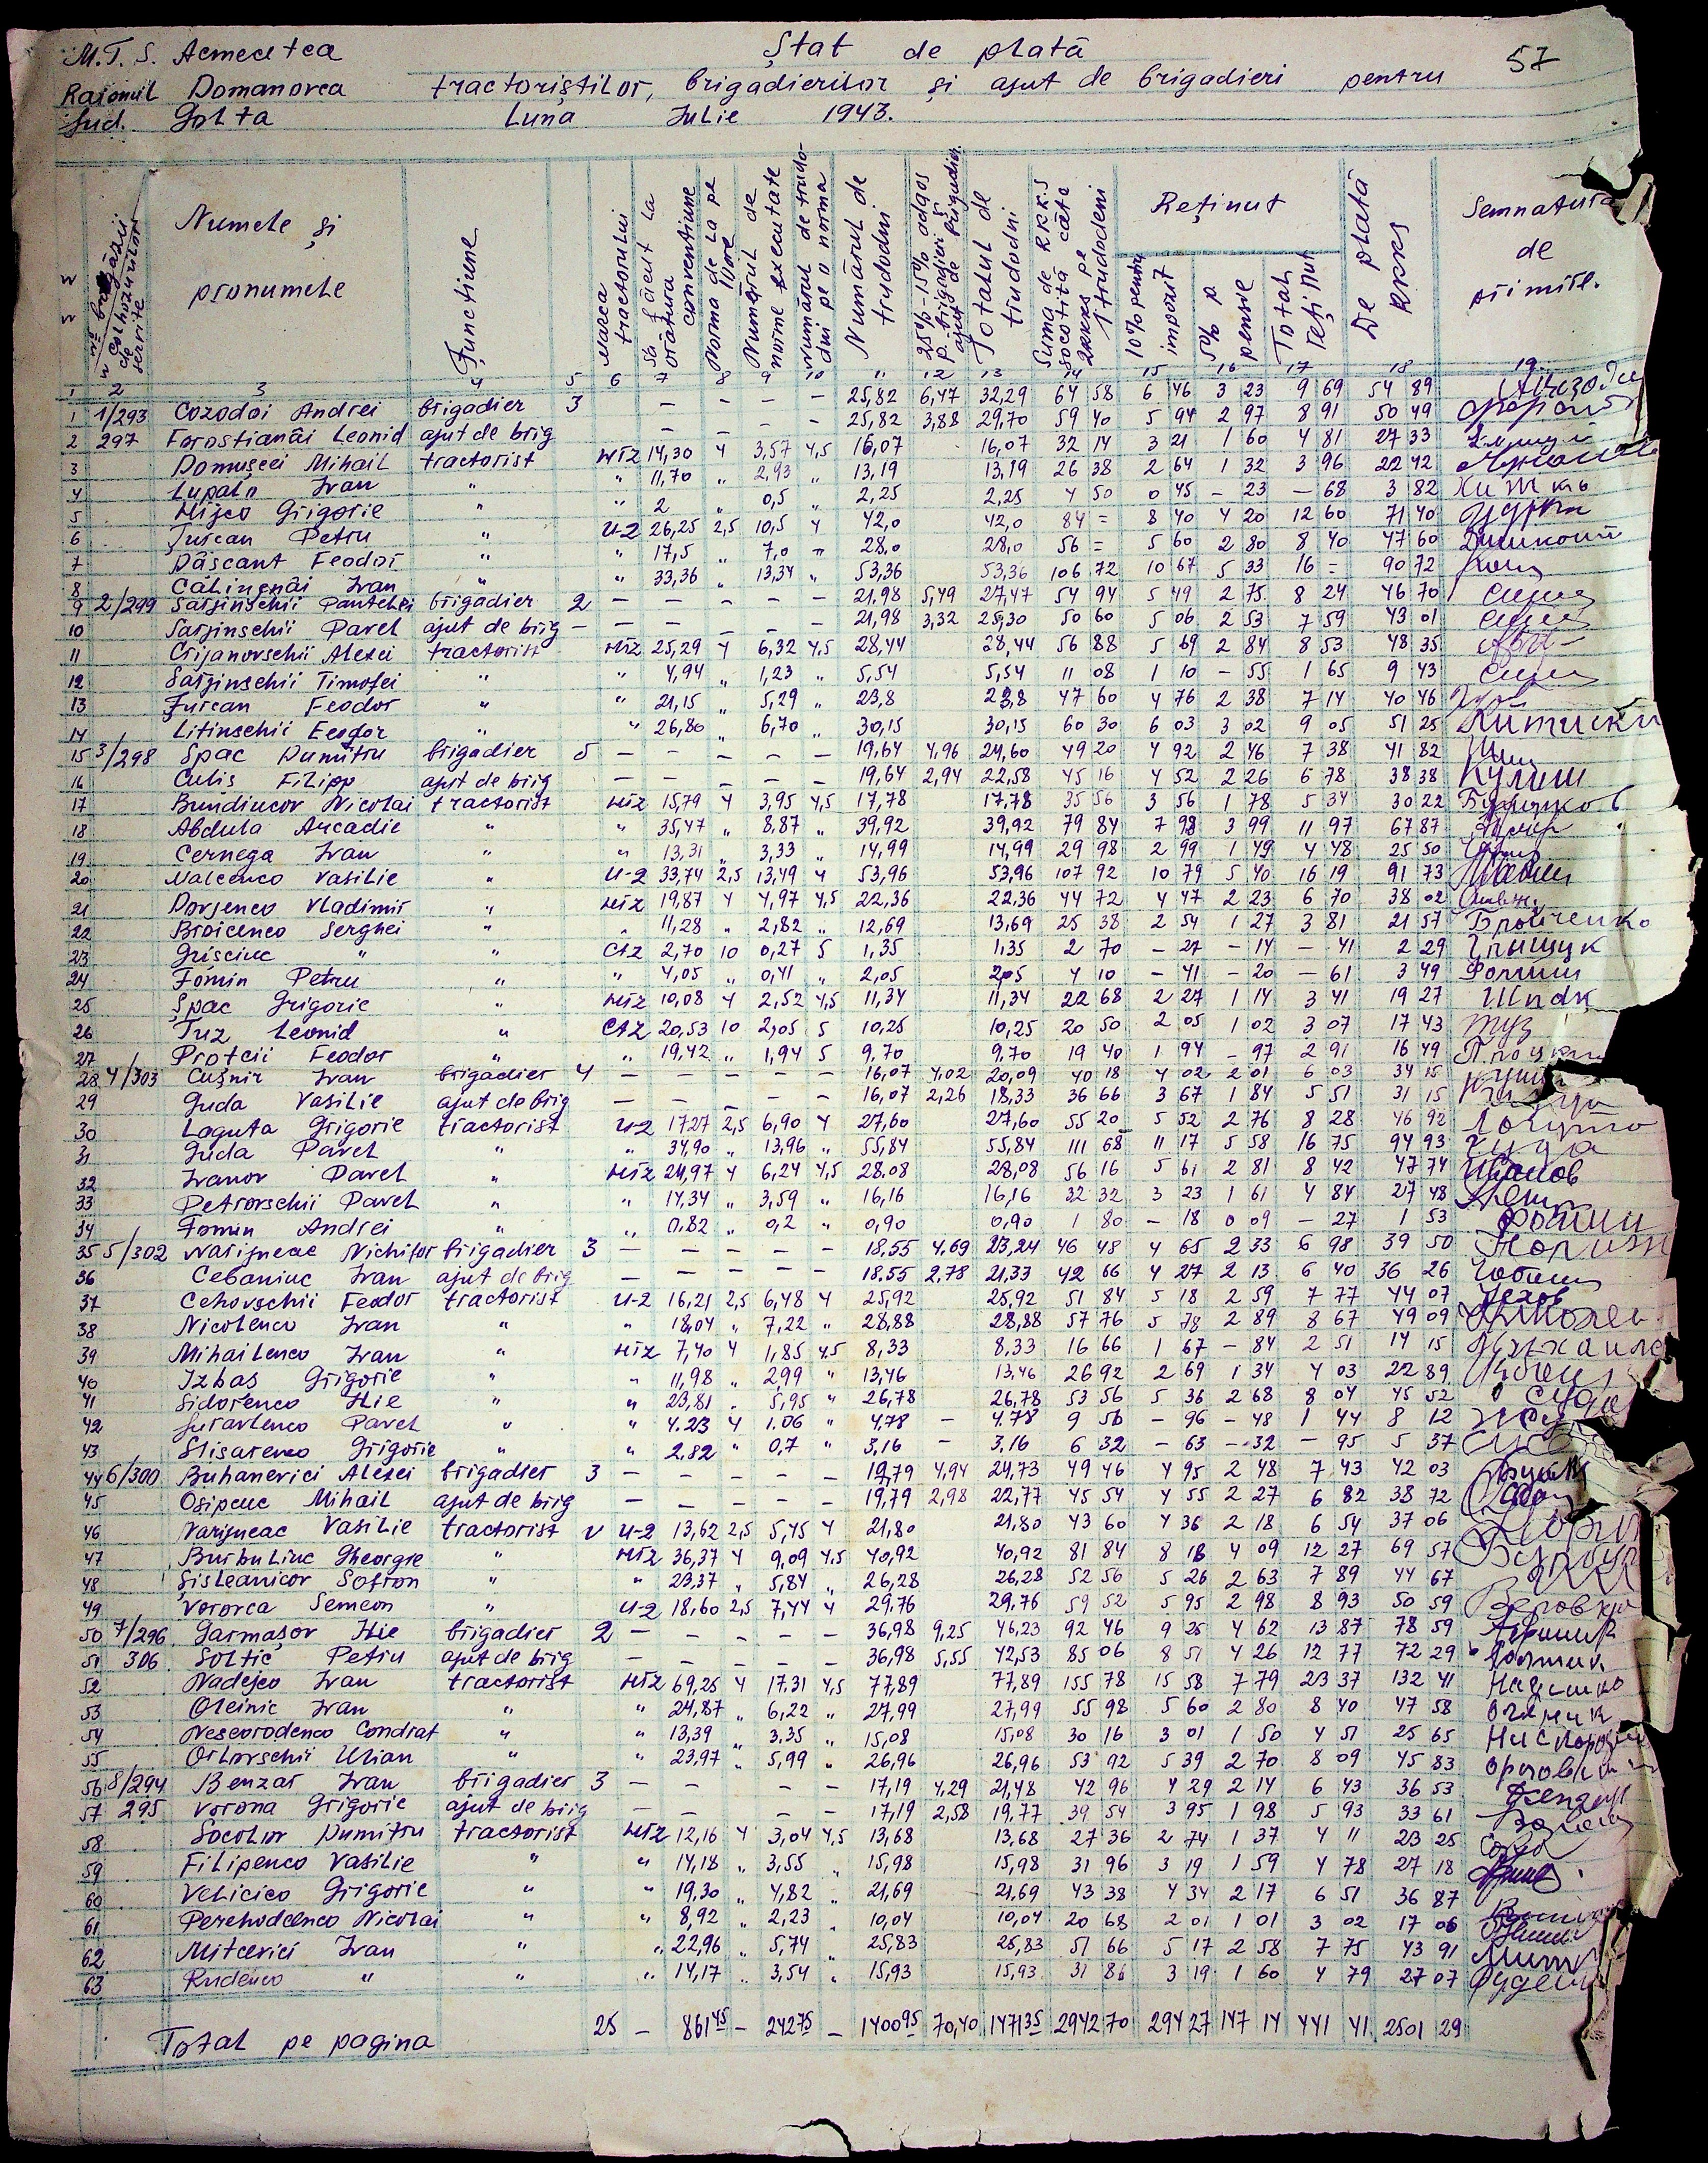 57
M.T.S. Acmecetca Ștat de plată
Raionul Domanovca tractoriștilor, brigadierilor și ajut de brigadieri pentru
Jud. Golta Luna Iulie 1943.
Numele și pronumele
Funcțiune
Marca tractorului
Norma de la pe
Numărul de norme executate
Numărul de trudodni
Totalul de trudodni
Reținut
10% pentru impozit
5% p pensie
Total reținut
De plată RKKS
Semnatura de primire.
1 2 3 4 5 6 7 8 9 10 11 12 13 14 15 16 17 18 19
1 1/293 Cozodoi Andrei brigadier 3 — — — — 25,82 6,47 32,29 64 58 6 46 3 23 9 69 54 89
2 297 Forostianâi Leonid ajut de brig — — — — 25,82 3,88 29,70 59 40 5 94 2 97 8 91 50 49
3 Domușcei Mihail tractorist 14,30 4 3,57 4,5 16,07 16,07 32 14 3 21 1 60 4 81 27 33
4 Lupalo Ivan " " 11,70 " 2,93 " 13,19 13,19 26 38 2 64 1 32 3 96 22 42
5 Grigorie " " 2 " 0,5 " 2,25 2,25 4 50 0 45 - 23 - 68 3 82
6 Țurcan Petru " U-2 26,25 2,5 10,5 4 42,0 42,0 84 = 8 40 4 20 12 60 71 40
7 Dâscant Feodor " " 17,5 " 7,0 " 28,0 28,0 56 = 5 60 2 80 8 40 47 60
8 Călinenâi Ivan " " 33,36 " 13,34 " 53,36 53,36 106 72 10 67 5 33 16 = 90 72
9 2/299 Sarjinschii Pantelei brigadier 2 — — — — — 21,98 5,49 27,47 54 94 5 49 2 75 8 24 46 70
10 Sarjinschii Pavel ajut de brig — — — — — 21,98 3,32 25,30 50 60 5 06 2 53 7 59 43 01
11 Crijanovschii Alexei tractorist 25,29 4 6,32 4,5 28,44 28,44 56 88 5 69 2 84 8 53 48 35
12 Sarjinschii Timofei " " 4,94 " 1,23 " 5,54 5,54 11 08 1 10 - 55 1 65 9 43
13 Țurcan Feodor " " 21,15 " 5,29 " 23,8 23,8 47 60 4 76 2 38 7 14 40 46
14 Litinschii Feodor " " 26,80 " 6,70 " 30,15 30,15 60 30 6 03 3 02 9 05 51 25
15 3/298 Spac Dumitru brigadier 5 — — — — — 19,64 4,96 24,60 49 20 4 92 2 46 7 38 41 82
16 Culis Filipp ajut de brig — — — — — 19,64 2,94 22,58 45 16 4 52 2 26 6 78 38 38 Кулиш
17 Bundiucov Nicolai tractorist 15,79 4 3,95 4,5 17,78 17,78 35 56 3 56 1 78 5 34 30 22
18 Abdula Arcadie " " 35,47 " 8,87 " 39,92 39,92 79 84 7 98 3 99 11 97 67 87
19 Cernega Ivan " " 13,31 " 3,33 " 14,99 14,99 29 98 2 99 1 49 4 48 25 50
20 Malcenco Vasilie " U-2 33,74 2,5 13,49 4 53,96 53,96 107 92 10 79 5 40 16 19 91 73
21 Dovjenco Vladimir " 19,87 4 4,97 4,5 22,36 22,36 44 72 4 47 2 23 6 70 38 02
22 Broicenco Serghei " " 11,28 " 2,82 " 12,69 13,69 25 38 2 54 1 27 3 81 21 57 Бройченко
23 Grișciuc " " CTZ 2,70 10 0,27 5 1,35 1,35 2 70 - 27 - 14 - 41 2 29 Грищук
24 Fomin Petru " " 4,05 " 0,41 " 2,05 2,05 4 10 - 41 - 20 - 61 3 49 Фомин
25 Șpac Grigorie " 10,08 4 2,52 4,5 11,34 11,34 22 68 2 27 1 14 3 41 19 27 Шпак
26 Tuz Leonid " CTZ 20,53 10 2,05 5 10,25 10,25 20 50 2 05 1 02 3 07 17 43 Туз
27 Proțcii Feodor " " 19,42 " 1,94 5 9,70 9,70 19 40 1 94 - 97 2 91 16 49
28 4/303 Cușnir Ivan brigadier 4 — — — — — 16,07 4,02 20,09 40 18 4 02 2 01 6 03 34 15
29 Guda Vasilie ajut de brig — — — — 16,07 2,26 18,33 36 66 3 67 1 84 5 51 31 15
30 Laguta Grigorie tractorist U-2 17,27 2,5 6,90 4 27,60 27,60 55 20 5 52 2 76 8 28 46 92
31 Guda Pavel " " 34,90 " 13,96 " 55,84 55,84 111 68 11 17 5 58 16 75 94 93 Гуда
32 Ivanov Pavel " 24,97 4 6,24 4,5 28,08 28,08 56 16 5 61 2 81 8 42 47 74 Иванов
33 Petrovschii Pavel " " 14,34 " 3,59 " 16,16 16,16 32 32 3 23 1 61 4 84 27 48
34 Fomin Andrei " " 0,82 " 0,2 " 0,90 0,90 1 80 - 18 0 09 - 27 1 53 Фомин
35 5/302 Narijneac Nichifor brigadier 3 — — — — — 18,55 4,69 23,24 46 48 4 65 2 33 6 98 39 50
36 Cebaniuc Ivan ajut de brig — — — — — 18,55 2,78 21,33 42 66 4 27 2 13 6 40 36 26
37 Cehovschii Feodor tractorist U-2 16,21 2,5 6,48 4 25,92 25,92 51 84 5 18 2 59 7 77 44 07
38 Nicolenco Ivan " " 18,04 " 7,22 " 28,88 28,88 57 76 5 78 2 89 8 67 49 09
39 Mihailenco Ivan " 7,40 4 1,85 4,5 8,33 8,33 16 66 1 67 - 84 2 51 14 15
40 Izbas Grigorie " " 11,98 " 2,99 " 13,46 13,46 26 92 2 69 1 34 4 03 22 89
41 Sidorenco Ilie " " 23,81 " 5,95 " 26,78 26,78 53 56 5 36 2 68 8 04 45 52
42 Juravlenco Pavel " " 4.23 4 1.06 " 4,78 — 4.78 9 56 - 96 - 48 1 44 8 12
43 Slisarenco Grigorie " " 2.82 " 0,7 " 3,16 — 3,16 6 32 - 63 - 32 - 95 5 37
44 6/300 Buhanevici Alexei brigadier 3 — — — — — 19,79 4,94 24,73 49 46 4 95 2 48 7 43 42 03
45 Osipciuc Mihail ajut de brig — — — — — 19,79 2,98 22,77 45 54 4 55 2 27 6 82 38 72
46 Narijneac Vasilie tractorist U-2 13,62 2,5 5,45 4 21,80 21,80 43 60 4 36 2 18 6 54 37 06
47 Burbuliuc Gheorgie " 36,37 4 9,09 4,5 40,92 40,92 81 84 8 18 4 09 12 27 69 57
48 Șișleanicov Sofron " " 23,37 " 5,84 " 26,28 26,28 52 56 5 26 2 63 7 89 44 67
49 Vorovca Semeon " U-2 18,60 2,5 7,44 4 29,76 29,76 59 52 5 95 2 98 8 93 50 59
50 7/296 Garmașov Ilie brigadier 2 — — — — — 36,98 9,25 46,23 92 46 9 25 4 62 13 87 78 59
51 306 Soltic Petru ajut de brig — — — — — 36,98 5,55 42,53 85 06 8 51 4 26 12 77 72 29
52 Nadejco Ivan tractorist 69,25 4 17,31 4,5 77,89 77,89 155 78 15 58 7 79 23 37 132 41
53 Oleinic Ivan " " 24,87 " 6,22 " 27,99 27,99 55 98 5 60 2 80 8 40 47 58
54 Nescorodenco Condrat " " 13,39 " 3,35 " 15,08 15,08 30 16 3 01 1 50 4 51 25 65
55 Orlovschii Ulian " " 23,97 " 5,99 " 26,96 26,96 53 92 5 39 2 70 8 09 45 83
56 8/294 Benzar Ivan brigadier 3 — — — — 17,19 4,29 21,48 42 96 4 29 2 14 6 43 36 53
57 295 Vorona Grigorie ajut de brig — — — — 17,19 2,58 19,77 39 54 3 95 1 98 5 93 33 61
58 Socolov Dumitru tractorist 12,16 4 3,04 4,5 13,68 13,68 27 36 2 74 1 37 4 11 23 25
59 Filipenco Vasilie " " 14,18 " 3,55 " 15,98 15,98 31 96 3 19 1 59 4 78 27 18
60 Velicico Grigorie " " 19,30 " 4,82 " 21,69 21,69 43 38 4 34 2 17 6 51 36 87
61 Perehodcenco Nicolai " " 8,92 " 2,23 " 10,04 10,04 20 68 2 01 1 01 3 02 17 06
62 Mitcevici Ivan " " 22,96 " 5,74 " 25,83 25,83 51 66 5 17 2 58 7 75 43 91
63 Rudenco " " " 14,17 " 3,54 " 15,93 15,93 31 86 3 19 1 60 4 79 27 07
Total pe pagina 25 — 861 45 — 242 75 — 1400 95 70,40 1471 35 2942 70 294 27 147 14 441 41 2501 29